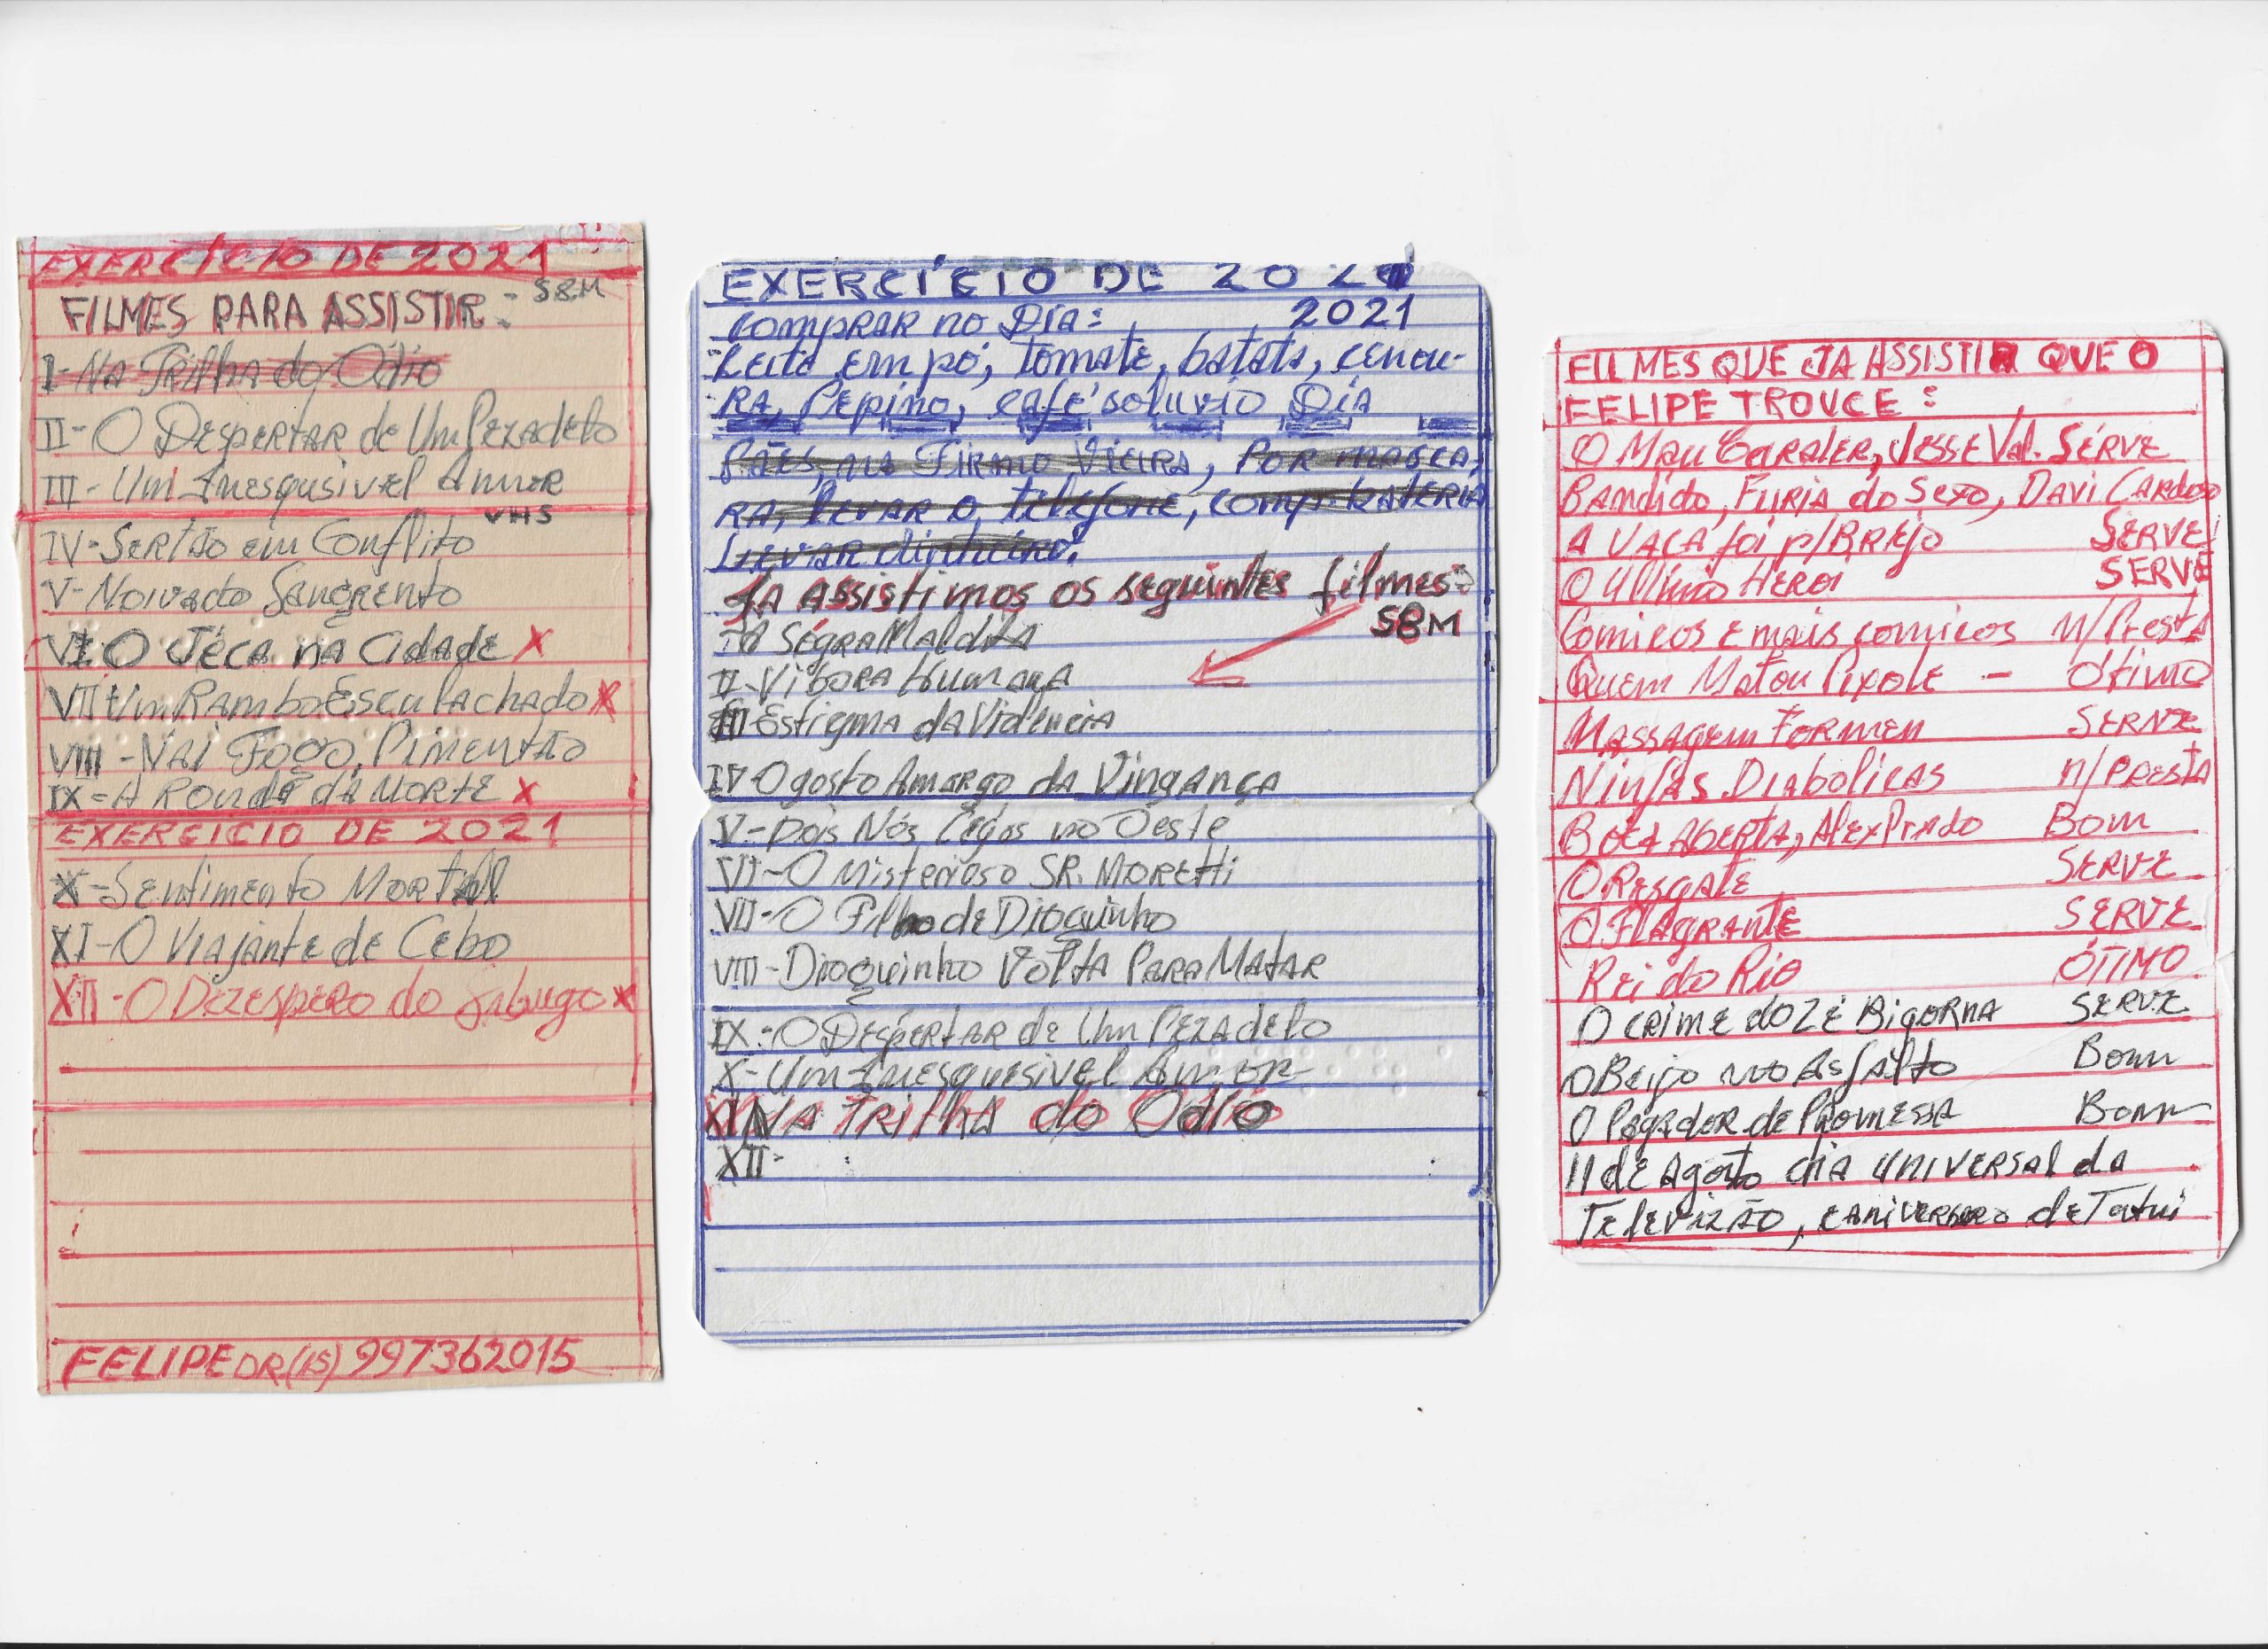 EXERCÍCIO DE 2021
S8M
FILMES PARA ASSISTIR:
I- NA Trilha do Ódio
II- O Despertar de Um Pezadelo
III- Um Inesqusivel Amor
VHS
IV- Sertão em Conflito
V- Noivado Sangrento
VI- O Jéca na Cidade X
VII- Um Rambo Esculachado X
VIII - Vai Fogo, Pimentão
IX - A Ronda da Morte X
EXERCICIO DE 2021
X- Sentimento Mortal
XI- O Viajante de Cebo
XII- O Dezespero do Jabugo X
FELIPE DR (15) 997362015
EXERCÍCIO DE 202
Comprar no Dia: 2021
Leite em pó, tomate, batata, cenou-
RA, Pepino, café soluvio Dia
Pães, na Firmo Vieira, Por masca,
RA, levar o telefone, comp. bateria
Levar dinheiro.
Ja Assistimos os seguintes filmes:
S8M
I A Sógra Maldita
II- Vibora Humana
III- Estigma da Violencia
IV O gosto Amargo da Vingança
V- Dois Nós Cegos no Oeste
VI- O Misterioso SR. Moretti
VII- O Filho de Dioguinho
VIII- Dioguinho Volta Para Matar
IX- O Despertar de Um Pezadelo
X- Um Inesquesivel Amor
XI NA Trilha do Ódio
XII-
FILMES QUE JA ASSISTI QUE O
FELIPE TROUCE:
O Mau Carater, Jesse Val. Serve
Bandido, Furia do Sexo, Davi Cardoso
A VACA foi p/ Brejo SERVE
O Ultimo Heroi SERVE
Comicos e mais comicos N/ Presta
Quem Matou Pixote - Ótimo
Massagem For men SERVE
Ninfas Diabolicas N/ PRESTA
Boca Aberta, Alex Prado Bom
O Resgate SERVE
O Flagrante SERVE
Rei do Rio ÓTIMO
O crime do Zé Bigorna SERVE
O Beijo no Asfalto Bom
O Pagador de Promessa Bom
11 de Agosto dia universal da
Televizão, e aniversaro de Tatui